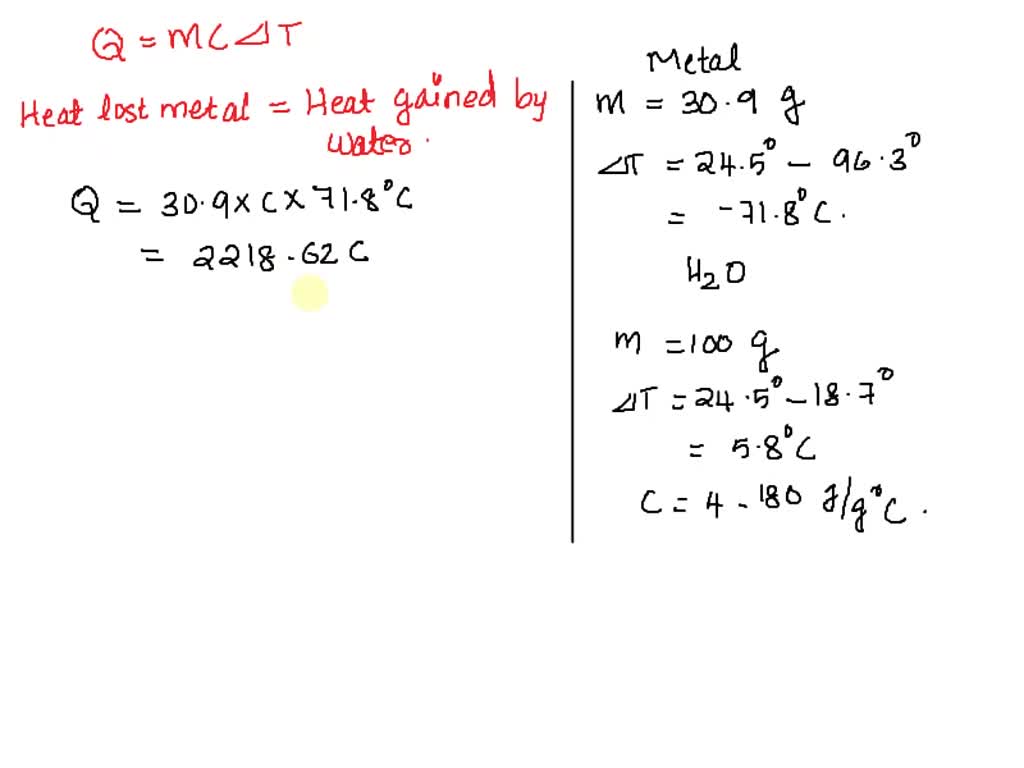 Q = MC⊿T
Heat lost metal = Heat gained by
Water.
Q = 30.9 x C x 71.8°C
= 2218.62 C
Metal
m = 30.9 g
⊿T = 24.5° - 96.3°
= -71.8°C.
H₂O
m = 100 g
⊿T = 24.5° - 18.7°
= 5.8°C
C = 4.180 J/g°C.